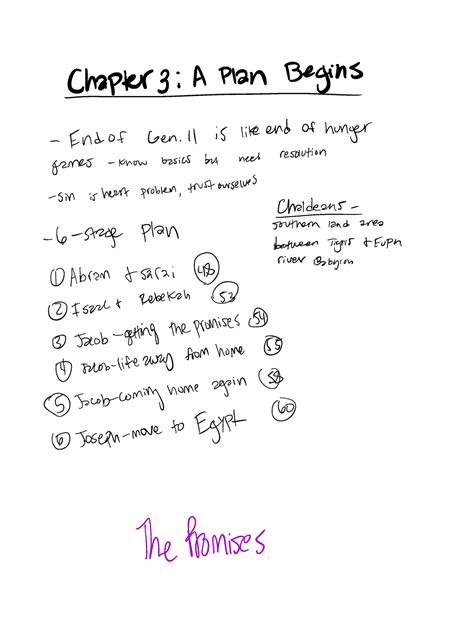 Chapter 3: A Plan Begins
- End of Gen. 11 is like end of hunger
games - know basics but need resolution
- Sin is heart problem, trust ourselves
Chaldeans -
southern land area
between Tigris & Euph
river Babylon
- 6-stage Plan
① Abram & Sarai 48
② Isaac & Rebekah 53
③ Jacob-getting the promises 54
④ Jacob-life away from home 55
⑤ Jacob-coming home again 58
⑥ Joseph-move to Egypt 60
The Promises